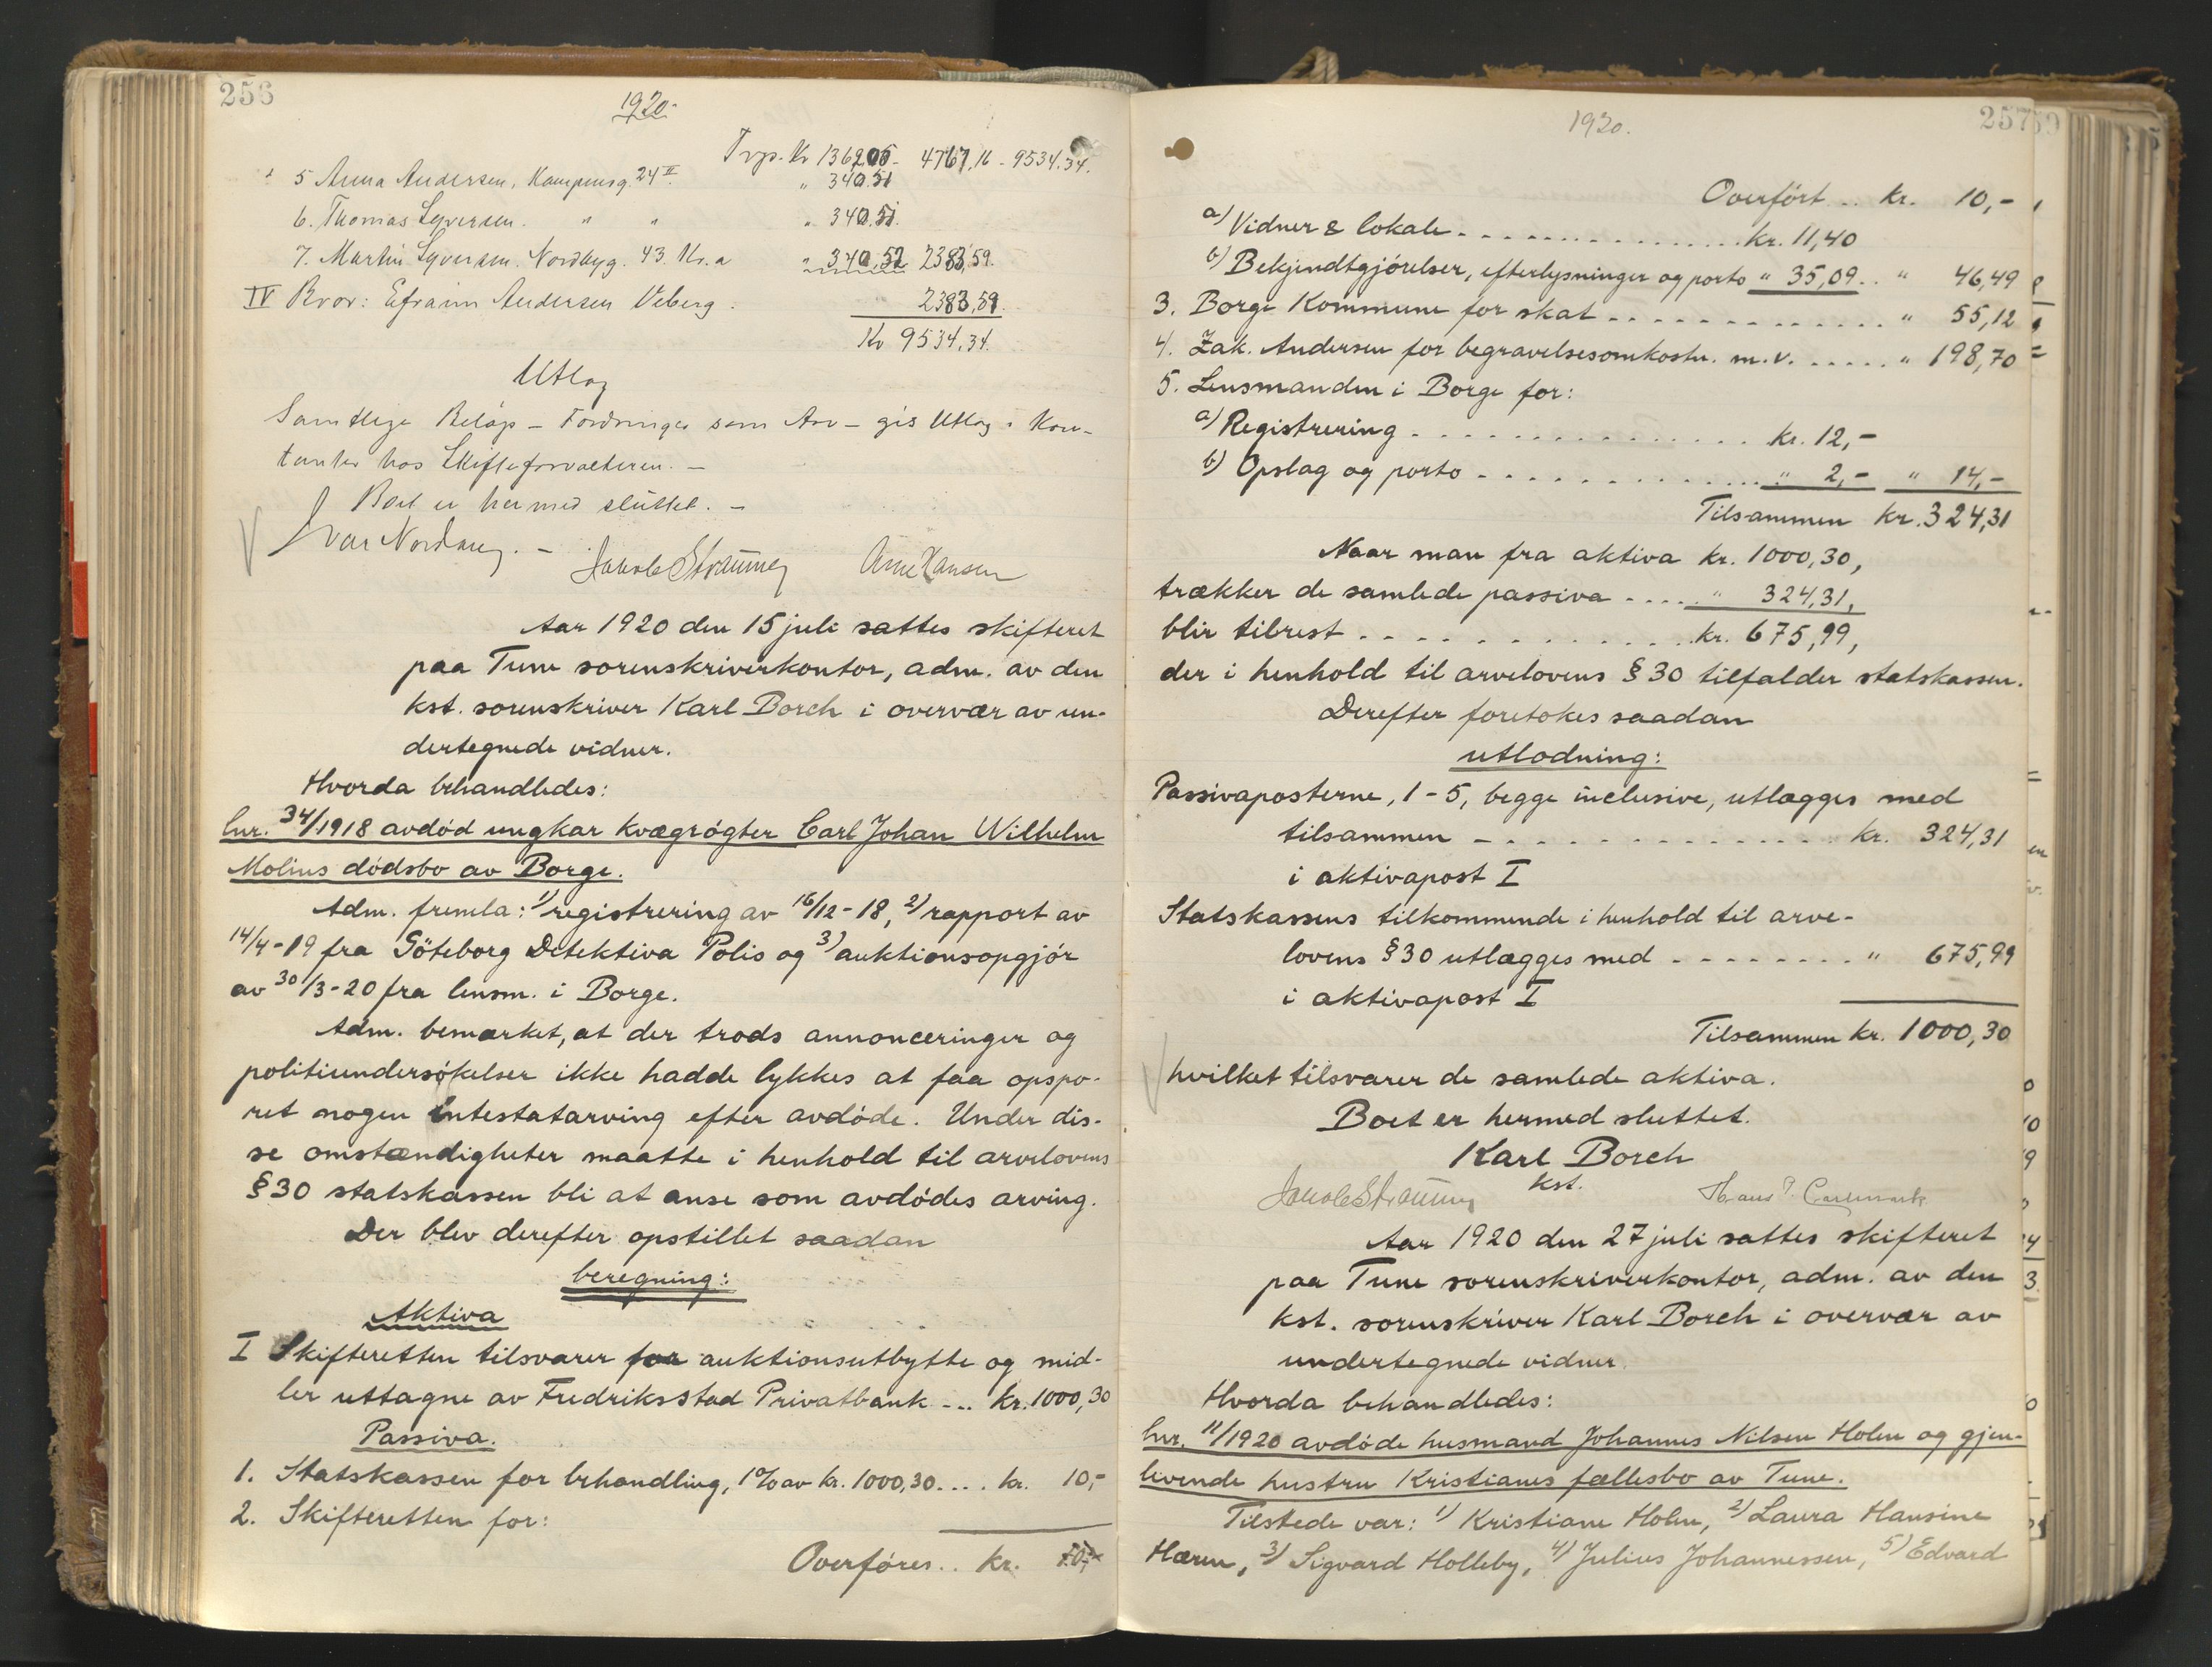 256
1920.
Trp. Kr 1362,05 - 4767,16 - 9534.34.
5 Anna Andersen, Kampensg. 24 II. " 340.51
6. Thomas Syversen. " " " 340.51.
7. Martin Syversen. Nordbyg. 43. Kr.a " 340,52 2383,59.
IV Bror: Efraim Andersen Viberg. 2383,59.
Kr 9534.34.
Utlæg
Samtlige Beløp - Fordringer som Arv - gis Utlæg i Kon-
tanter hos Skifteforvalteren. -
Boet er hermed sluttet. -
Ivar Nordang. -
Jakob Straumøy Arne Hansen
Aar 1920 den 15 juli sattes skifteret
paa Tune sorenskriverkontor, adm. av den
kst. sorenskriver Karl Borch i overvær av un-
dertegnede vidner.
Hvorda behandledes:
lnr. 34/1918 avdød ungkar kvægrøgter Carl Johan Wilhelm
Molins dødsbo av Borge.
Adm. fremla: 1) registrering av 16/12-18, 2) rapport av
14/4-19 fra Göteborg Detektiva Polis og 3) auktionsopgjør
av 30/3-20 fra lensm. i Borge.
Adm. bemærket, at der trods annonceringer og
politiundersøkelser ikke hadde lykkes at faa opspo-
ret nogen intestatarving efter avdøde. Under dis-
se omstændigheter maatte i henhold til arvelovens
§ 30 statskassen bli at anse som avdødes arving.
Der blev derefter opstillet saadan
beregning:
Aktiva
I Skifteretten tilsvarer for auktionsutbytte og mid-
ler uttagne av Fredriksstad Privatbank ... kr. 1000,30
Passiva.
1. Statskassen for behandling, 1% av kr. 1000,30.... kr. 10,-
2. Skifteretten for:
Overføres.. kr. 10,-
257
1920.
Overført .. kr. 10,-
a) Vidner & lokale - - - - - kr. 11,40
b) Bekjendtgjørelser, efterlysninger og porto " 35,09 .. " 46,49
3. Borge Kommune for skat - - - - - " 55,12
4. Zak. Andersen for begravelsesomkostn. m.v. ..... " 198,70
5. Lensmanden i Borge for:
a) Registrering - - - - - kr. 12,-
b) Opslag og porto - - - - - " 2,- " 14,-
Tilsammen kr. 324,31
Naar man fra aktiva kr. 1000,30,
trækker de samlede passiva ..... " 324,31,
blir tilrest - - - - - kr. 675,99,
der i henhold til arvelovens § 30 tilfalder statskassen.
Derefter foretokes saadan
utlodning:
Passivaposterne, 1-5, begge inclusive, utlægges med
tilsammen - - - - - kr. 324,31
i aktivapost I
Statskassens tilkommende i henhold til arve-
lovens § 30 utlægges med - - - - - " 675,99
i aktivapost I
Tilsammen kr. 1000,30
hvilket tilsvarer de samlede aktiva.
Boet er hermed sluttet.
Karl Borch
kst.
Jakob Straumøy Hans
Aar 1920 den 27 juli sattes skifteret
paa Tune sorenskriverkontor, adm. av den
kst. sorenskriver Karl Borch i overvær av
undertegnede vidner.
Hvorda behandledes:
lnr. 11/1920 avdøde husmand Johannes Nilsen Holm og gjen-
levende hustru Kristianes fællesbo av Tune.
Tilstede var: 1) Kristiane Holm, 2) Laura Hansine
Hæren, 3) Sigvard Holleby, 4) Julius Johannessen, 5) Edvard